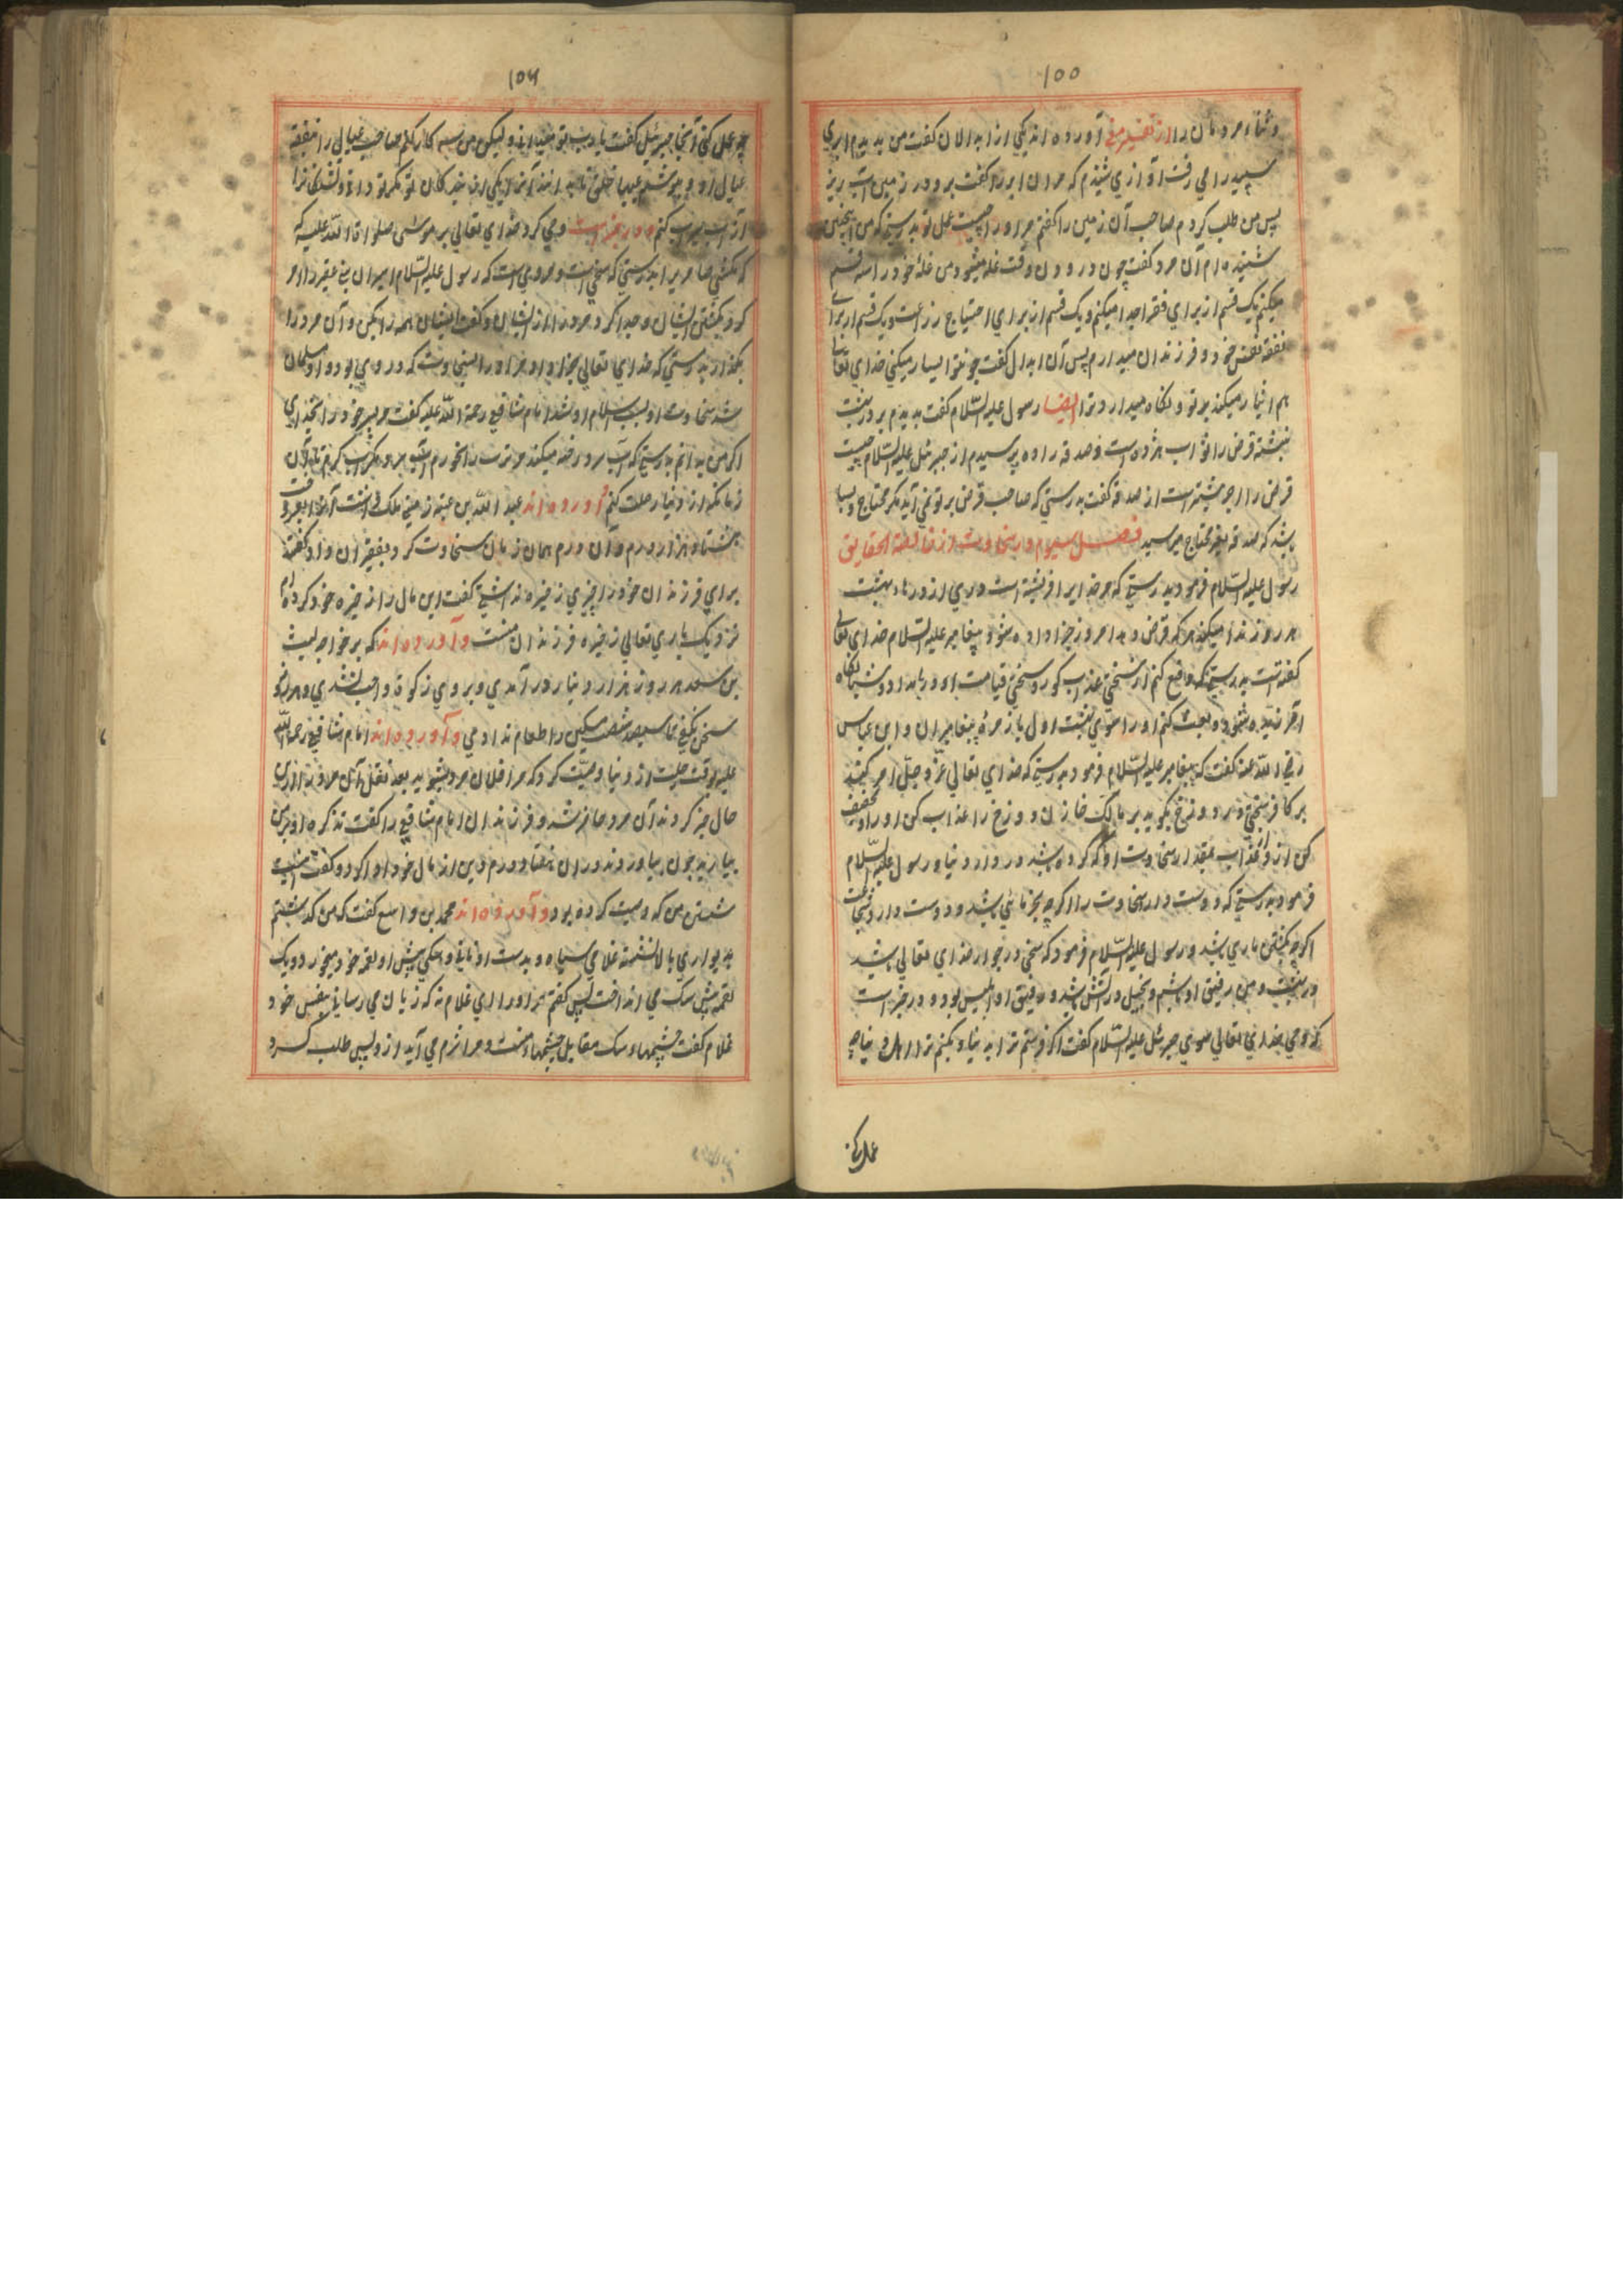 ۱۵۵
و ثنا مردمان را از تفسیر مغنی آورده اند یکی از ابدالان کفت من بدیدم ابری
سپید را می رفت اوازی شنیدم که مران ابر را کفت برو در زمین آب ریز
پس من طلب کردم صاحب آن زمین را کفتم مر او را چیست عمل تو بدرستیکه من اینچنین
شنیده ام آن مرد کفت چون درودن وقت غله میشود من غلهٔ خود را سه قسم
میکنم یک قسم از برای فقرا جدا میکنم و یک قسم از برای احتیاج زراعت و یک قسم از برای
نفقه نفس خود و فرزندان میدارم پس آن ابدال کفت چو تو ایسار میکنی خدای تعالی
هم ایثار میکند بر تو و نکاه میدارد ترا ایضا رسول علیه السّلام کفت بدیدم بر در بهشت
نبشته قرض را ثواب هژده است و صدقه را ده پرسیدم از جبرئیل علیه السّلام چیست
قرض را اجر بیشتر است از صدقه کفت بدرستی که صاحب قرض بر تو نمی آید مکر محتاج و بسا
باشد که صدقه بغیر محتاج میرسد فصل سیوم در سخاوت از خالصة الحقایق
رسول علیه السّلام فرمود بدرستی که مر خدایرا فرشته است بر دری از درهاء بهشت
هر روز ندا میکند هر که قرض دهد امروز جزا داده شود پیغامبر علیه السّلام خدای تعالی
کفته است بدرستیکه دفع کنم از سخی عذاب کور و سختی قیامت
ارزانیده شود و بعث کنم او را سوی بهشت اول با زمرهٔ پیغامبران و ابن عباس
رضی اللّه عنه کفت که پیغامبر علیه السّلام فرمود بدرستی که خدای تعالی عزّ و جلّ امر کند
بر کافر سخی در دوزخ بکوید بر مالک خازن دوزخ را عذاب کن او را و تخفیف
کن از و عذاب بمقدار سخاوت او که کرده باشد در دار دنیا و رسول علیه السّلام
فرمود بدرستی که دوست دارد سخاوت را اکرچه بخرمائی باشد و دوست دارد شجاعت
اکرچه بکشتن ماری باشد و رسول علیه السّلام فرمود که سخی در جوار خدای تعالی باشد
در بهشت و من رفیق او باشم و بخیل در آتش باشد و رفیق او ابلیس بود و در خبر است
که وحی خدای تعالی سوی جبرئیل علیه السّلام کفت اکر فرستم ترا بدنیا و بکنم ترا اهل دنیا چه
عمل کنی
۱۵۶
چو عمل کنی آنجا جبرئیل کفت یا رب تو میدانی ولیکن من سه کار کنم صاحب عیالی را بنفقه
عیال او و بپوشم عیبهاء خلق
آب سیراب کنم و در خبر است وحی کرد خدای تعالی بر موسی صلوات اللّه علیه که
که نکشی سامری را بدرستی که سخی است و مروی است که رسول علیه السّلام اسیران بنی عنبر را امر
کرد بکشتن ایشان و جدا کرد مردی را از ایشان و کفت ایشان همه را بکش و آن مرد را
بکذار بدرستی که خدای تعالی جزا داد مر او را بسخاوت که در وی بود و او مسلمان
شد سخاوت او سبب اسلام او شد امام شافعی رحمة اللّه علیه کفت مر پسر خود را بخدای
اکر من بدانم بدرستی که آب سرد رخنه میکند مروّت را نخورم آب سرد مکر آب کرم تا آن
زمانکه از دنیا رحلت کنم آورده اند عبد اللّه بن عتبه زمینی ملک داشت آنرا بفروخت
بهشتاد هزار درم و آن درم همان زمان سخاوت کرد بفقیران و او را کفتند
برای فرزندان خود را چیزی ذخیره نداشتی کفت این مال را ذخیره خود کرده ام
نزدیک باری تعالی ذخیره فرزندان منست و آورده اند که بر خواجه لیث
بن سعد هر روز هزار دینار در آمدی و بر وی زکوة واجب نشدی و هر روز
سخن نکفتی تا سیصد شصت مسکین را طعام ندادمی و آورده اند امام شافعی رحمة اللّه
علیه بوقت رحلت از دنیا وصیّت کرد که مرا فلان مرد بشوید بعد نقل آن مرد را ازین
حال خبر کردند آن مرد حاضر شد و فرزندان امام شافعی را کفت تذکره او برین
بیارید چون بیاوردند دران هفتاد درم دین از مال خود ادا کرد و کفت اینست
شستن من که وصیت کرده بود و آورده اند محمد بن واسع کفت که من کذشتم
بدیواری بالا نشسته غلامی سیاه و بدست او نانی و سکی پیش او لقمه خود میخورد و یک
لقمه پیش سک می انداخت پس کفتم مر او را ای غلام نه که زیان می رسانی بنفس خود
غلام کفت چشمهاء سک مقابل چشمهاء منست و مرا شرم می آید از و پس طلب کرد